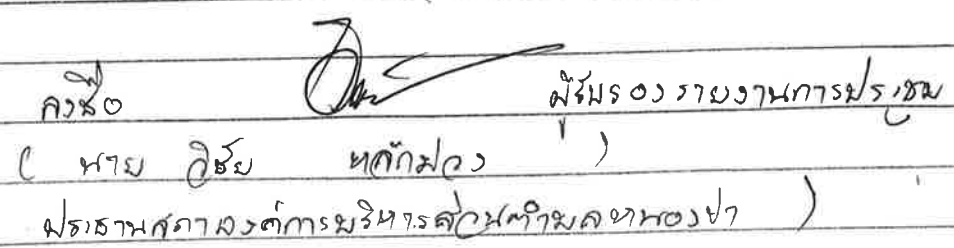 ลงชื่อ ผู้รับรองรายงานการประชุม
( นาย วิชัย )
ประธานสภาองค์การบริหารส่วนตำบล )